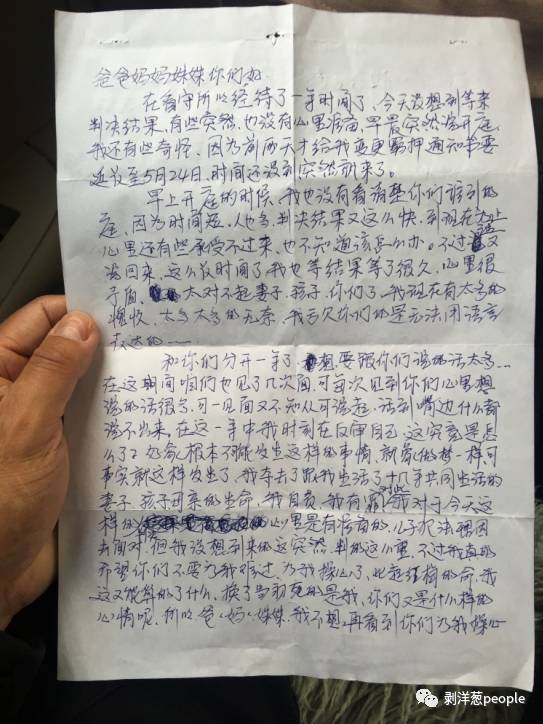 爸爸妈妈妹妹你们好
在看守所已经待了一年时间了，今天没想到等来
判决结果，有些突然，也没有心里准备，早晨突然说开庭
我还有些奇怪，因为前两天才给我变更羁押通知书要
延长至5月24日，时间还没到突然就来了。
早上开庭的时候，我也没有看清楚你们谁到的
庭，因为时间短，人也多，判决结果又这么快，到现在为止
心里还有些承受不过来，也不知道该怎么办。不过话又
说回来，这么久时间了，我也等结果等了很久，心里很
矛盾，太对不起妻子、孩子、你们了，我现在有太多的
悔恨，太多太多的无奈，我亏欠你们的是无法用语言
表达的……
和你们分开一年了，想要跟你们说的话太多…
在这期间咱们也见了几次面，可每次见到你们心里想
说的话很多，可一见面又不知从何说起，话到嘴边什么都
说不出来，在这一年中我时刻在反审自己，这究竟是怎
么了？如今根本不可能发生这样的事情，就像做梦一样可
事实就这样发生了，我夺去了跟我生活了十几年共同生活的
妻子、孩子母亲的生命，我自责，我有罪，我对于今天这
样的 心里是有准备的，儿子犯法理因
去面对，但我没想到来的这突然，判的这么重，不过我真的
希望你们不要为我难过，为我操心了，比起结梅的命，我
这又能算的了什么，换了当初死的是我，你们又是什么样的
心情呢，所以爸、妈、妹妹，我不想再看到你们为我操心
剥洋葱people